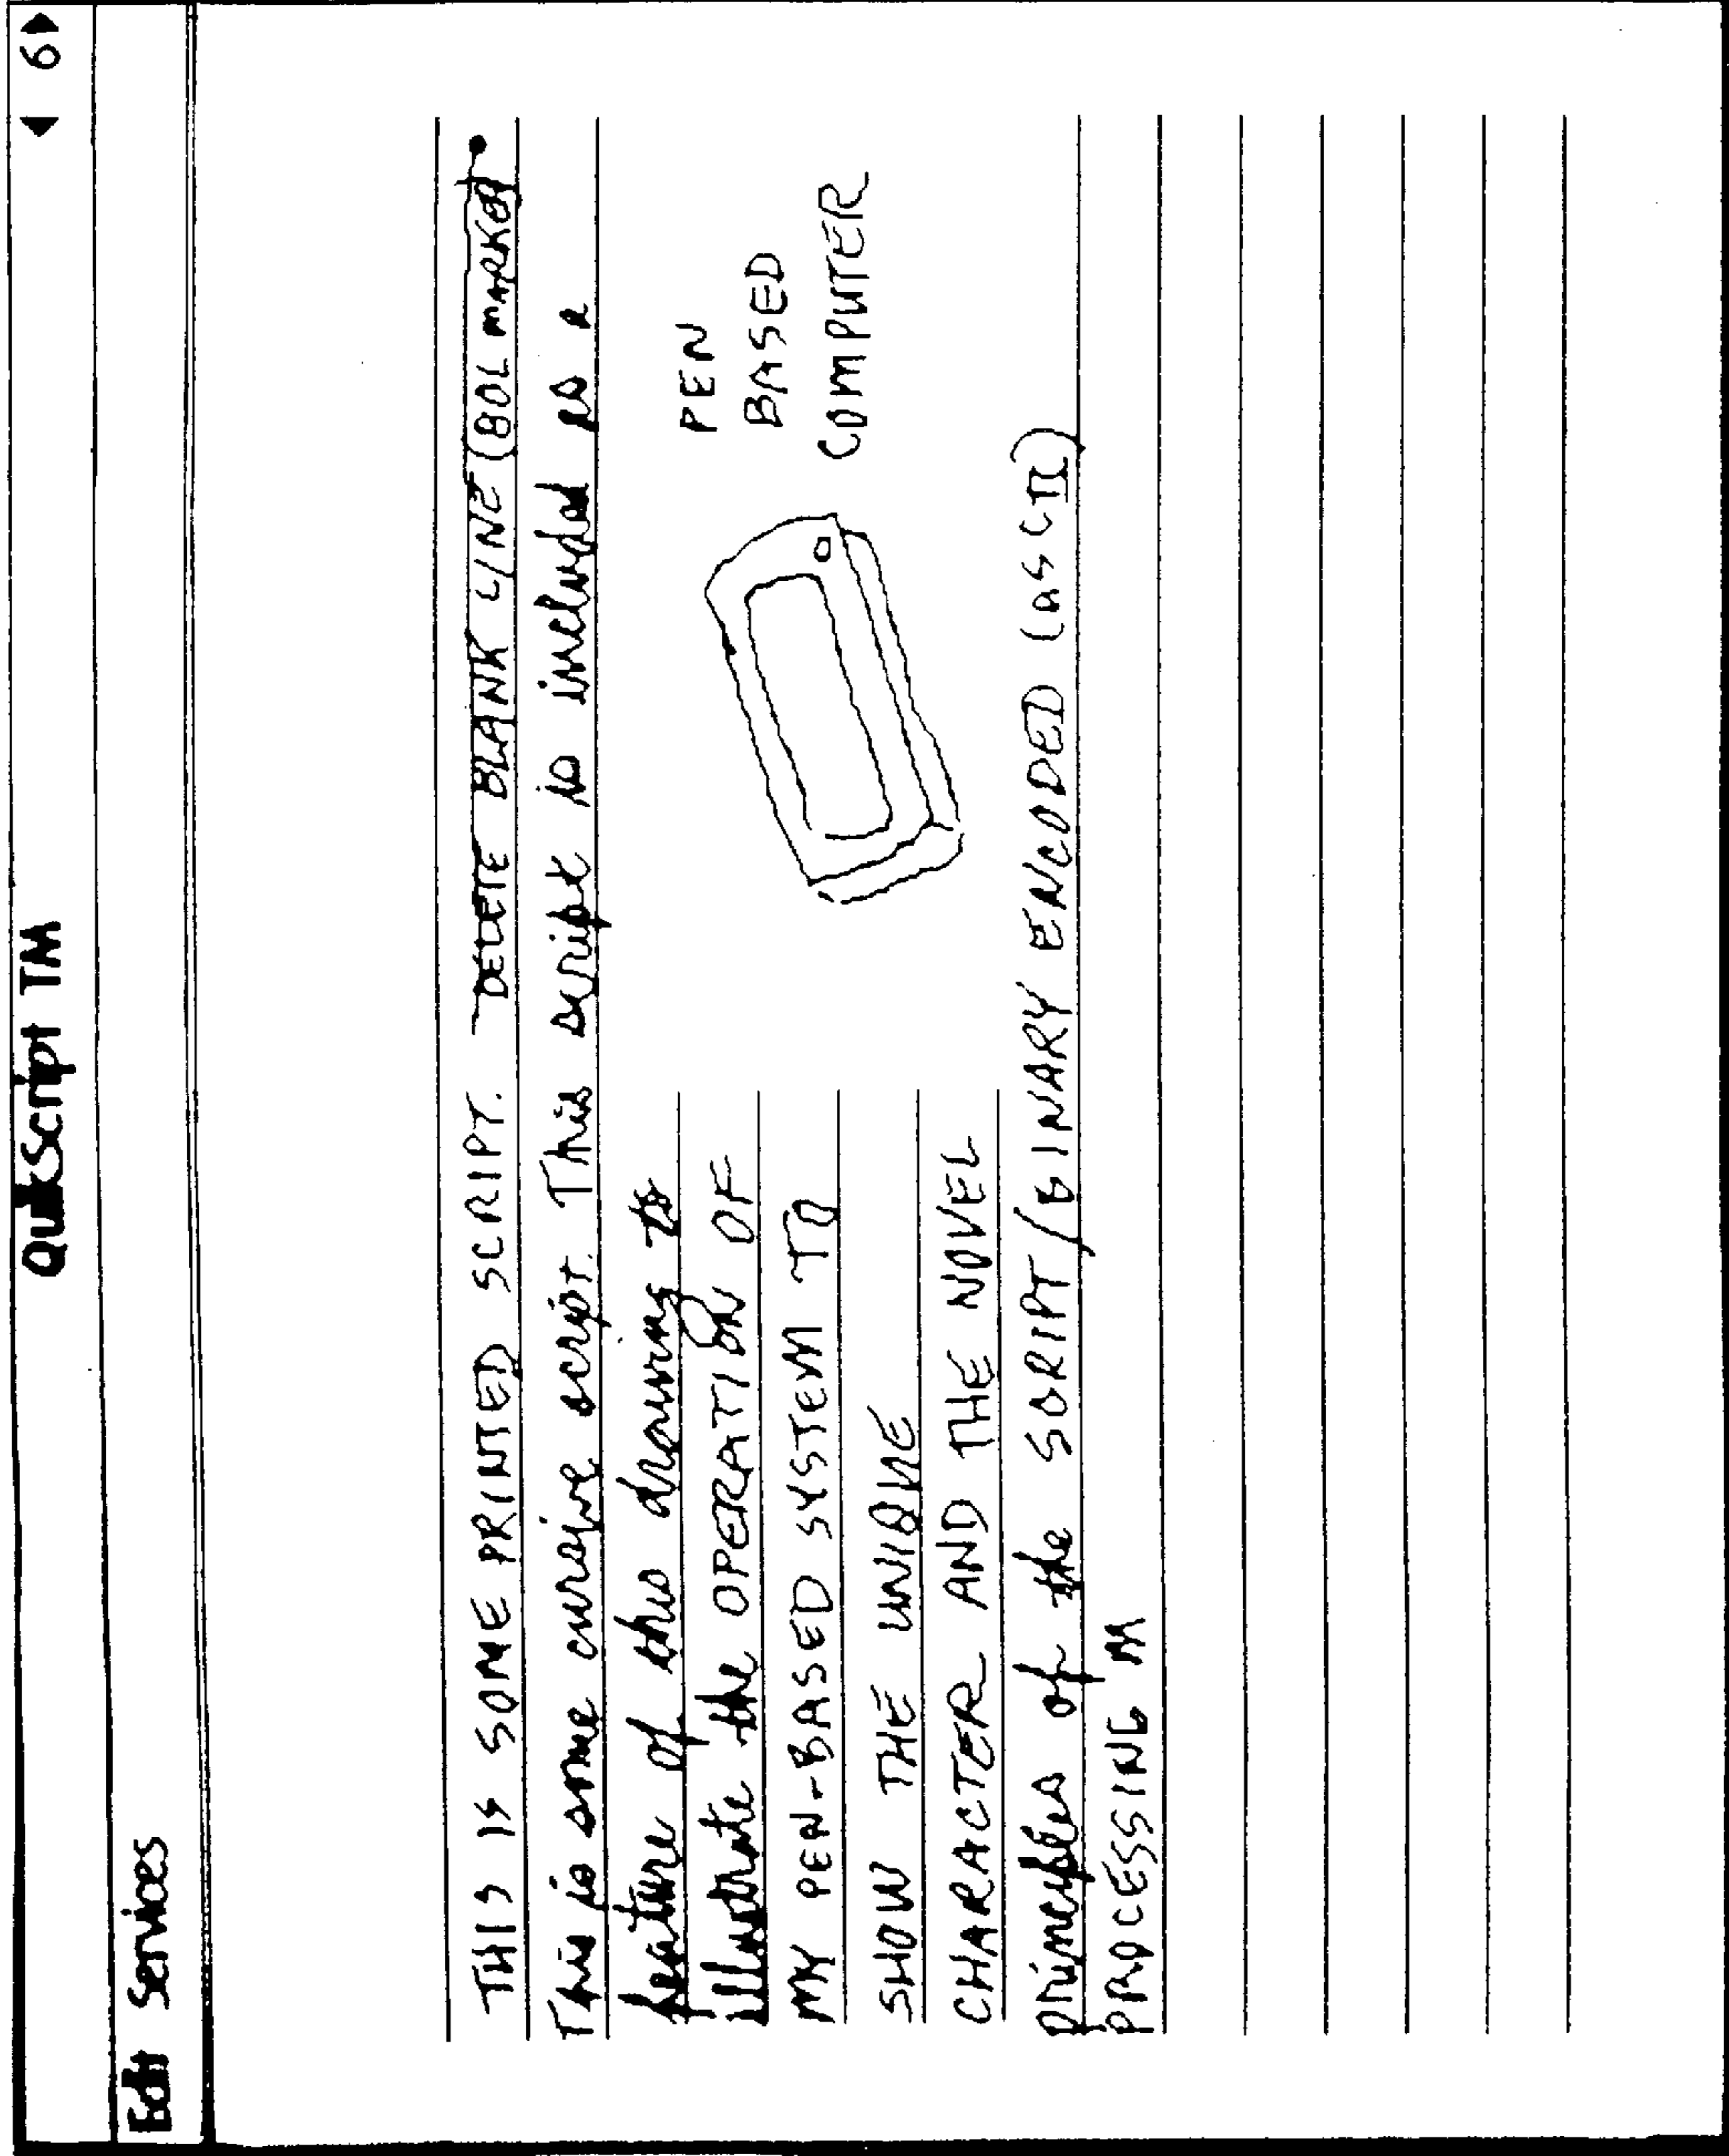 QuikScript TM ◀ 6 ▶
Edit Services
THIS IS SOME PRINTED SCRIPT. DELETE BLANK LINE (BOL MARKED
This is some cursive script. This script is included as a
feature of this drawing to
illustrate the OPERATION OF
MY PEN-BASED SYSTEM TO
SHOW THE UNIQUE
CHARACTER AND THE NOVEL
principles of the SCRIPT/BINARY ENCODED (ASCII)
PROCESSING M
PEN
BASED
COMPUTER